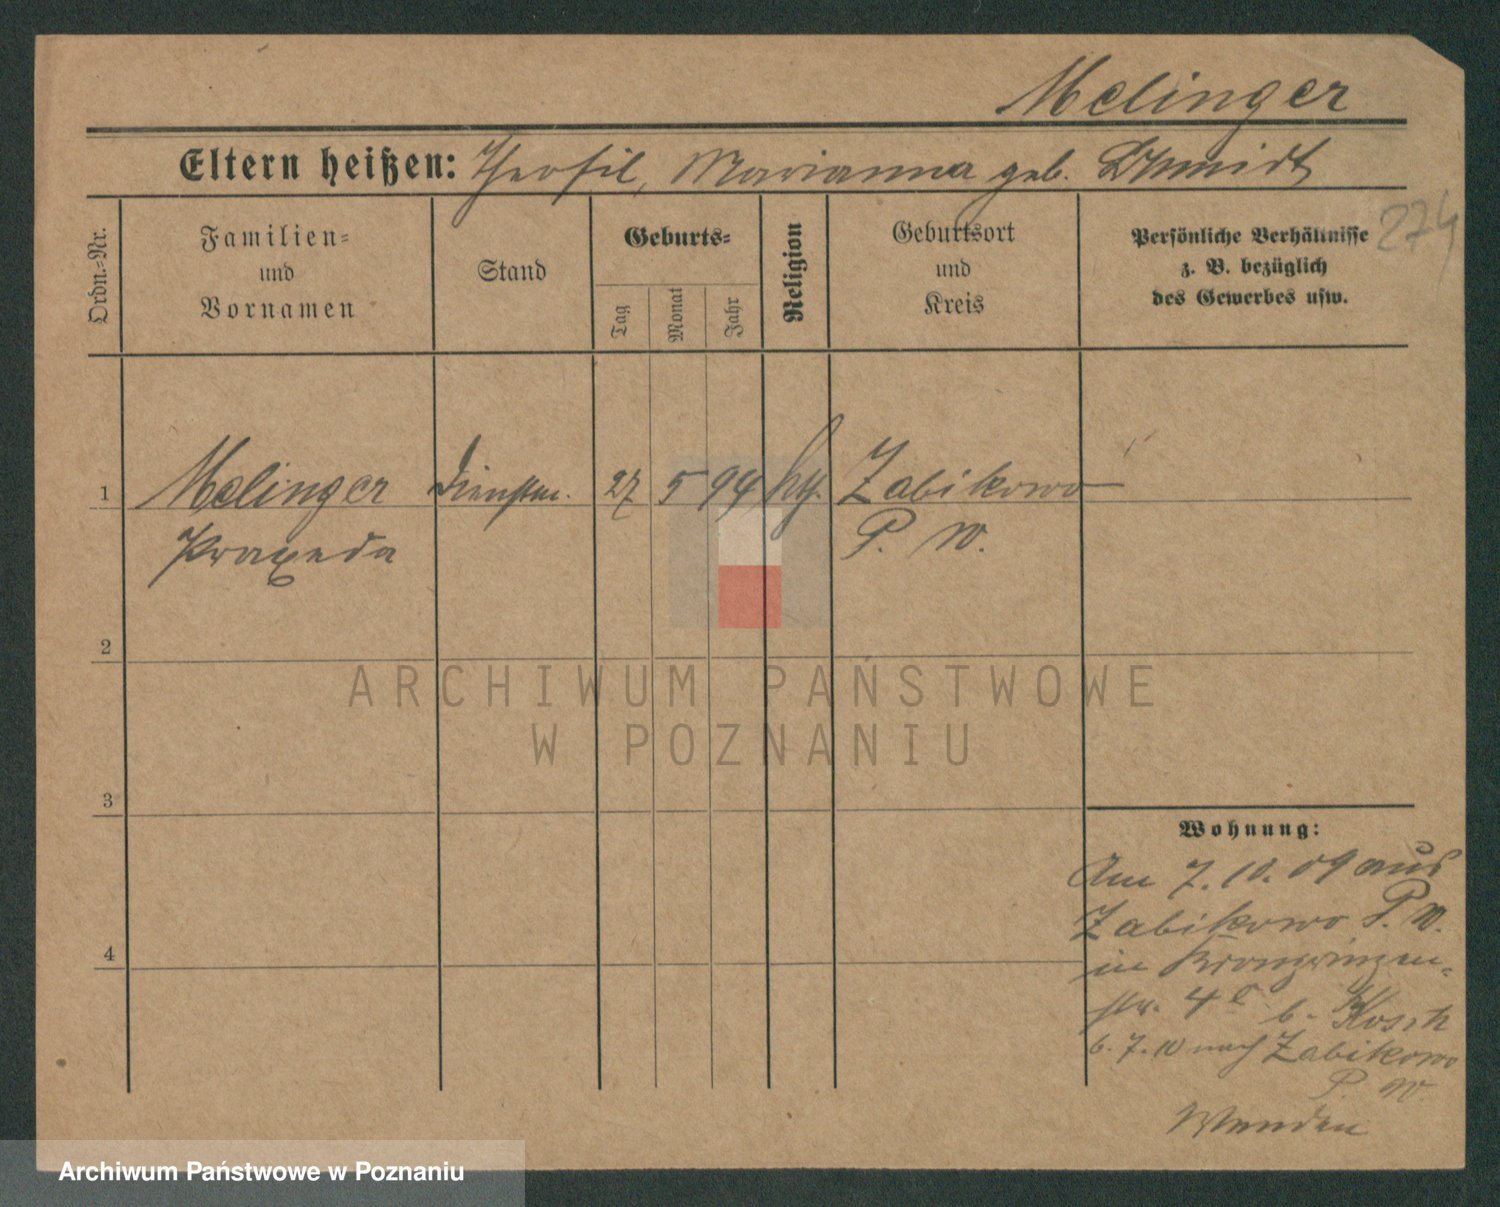 Melinger
Eltern heißen: Theofil, Marianna geb. Schmidt
274
Ordn.-Nr.
Familien-
und
Vornamen
Stand
Geburts-
Tag
Monat
Jahr
Religion
Geburtsort
und
Kreis
Persönliche Verhältnisse
z. B. bezüglich
des Gewerbes usw.
1 Melinger Dienstm. 27 5 94 Zabikowo
Praxeda P. W.
2
ARCHIWUM PAŃSTWOWE
W POZNANIU
3
Wohnung:
Am 7. 10. 09 aus
Zabikowo P. W.
4
in Kronprinzen-
str. 4 b.
6. 7. 10 nach Zabikowo
P. W.
Archiwum Państwowe w Poznaniu